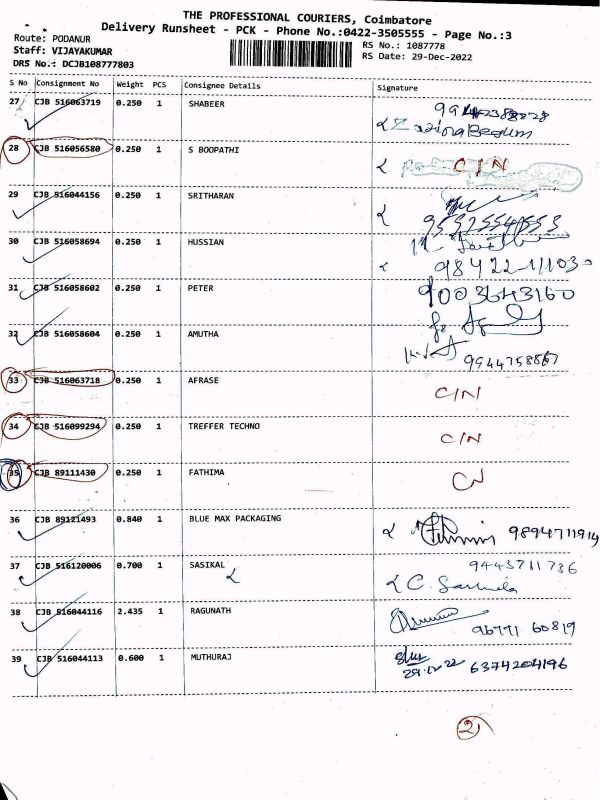 THE PROFESSIONAL COURIERS, Coimbatore
Delivery Runsheet - PCK - Phone No.:0422-3505555 - Page No.:3
Route: PODANUR
RS No.: 1087778
Staff: VIJAYAKUMAR
RS Date: 29-Dec-2022
DRS No.: DCJB108777803
S No Consignment No Weight PCS Consignee Details Signature
27 CJB 516063719 0.250 1 SHABEER
28 CJB 516056580 0.250 1 S BOOPATHI C/N
29 CJB 516044156 0.250 1 SRITHARAN
30 CJB 516058694 0.250 1 HUSSIAN
98422-11030
31 CJB 516058602 0.250 1 PETER 9003643160
32 CJB 516058604 0.250 1 AMUTHA
9944758867
33 CJB 516063718 0.250 1 AFRASE C/N
34 CJB 516099294 0.250 1 TREFFER TECHNO C/N
35 CJB 89111430 0.250 1 FATHIMA CN
36 CJB 89121493 0.840 1 BLUE MAX PACKAGING 9894711914
37 CJB 516120006 0.700 1 SASIKAL 9443711736
38 CJB 516044116 2.435 1 RAGUNATH
96791 60819
39 CJB 516044113 0.600 1 MUTHURAJ
29.12.22 6374204196
2